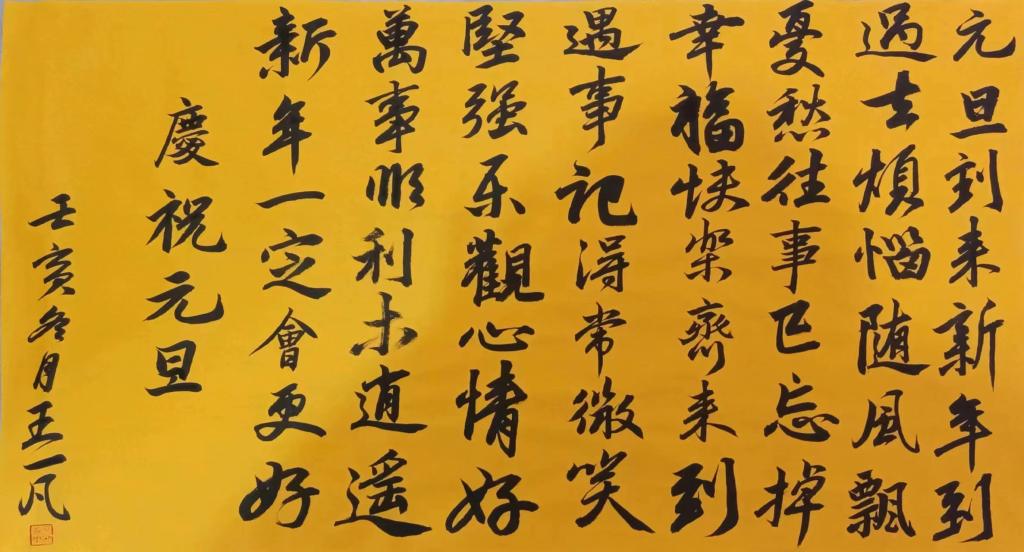 元旦到来新年到
過去煩惱随風飄
憂愁往事已忘掉
幸福快樂齊来到
遇事記得常微笑
堅强乐觀心情好
萬事順利逍遥
新年一定會更好
慶祝元旦
壬寅冬月王一凡